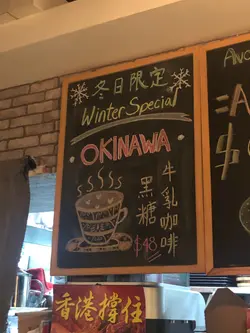 冬日限定
Winter Special
OKINAWA
黑糖
牛乳咖啡
$48
香港撐住